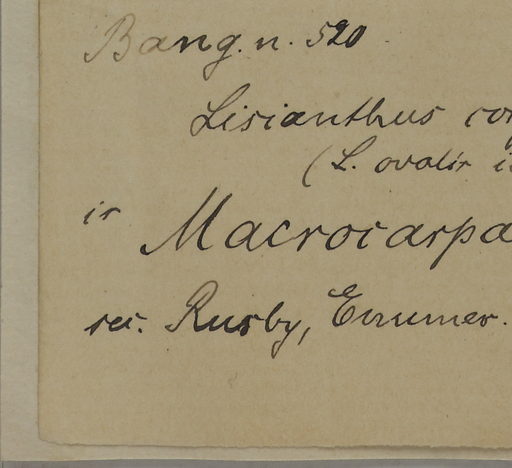 Bang. n. 520
Lisianthus cor
(L. ovalis i
is Macrocarpa
sec. Rusby, Enumer.